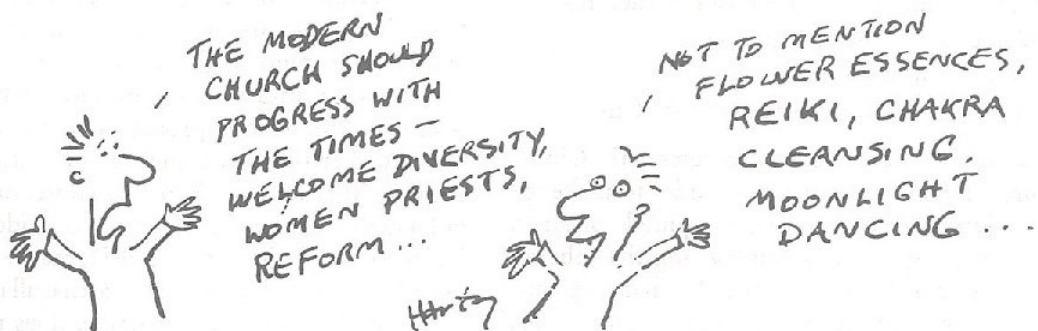 THE MODERN
CHURCH SHOULD
PROGRESS WITH
THE TIMES –
WELCOME DIVERSITY,
WOMEN PRIESTS,
REFORM...
NOT TO MENTION
FLOWER ESSENCES,
REIKI, CHAKRA
CLEANSING,
MOONLIGHT
DANCING...